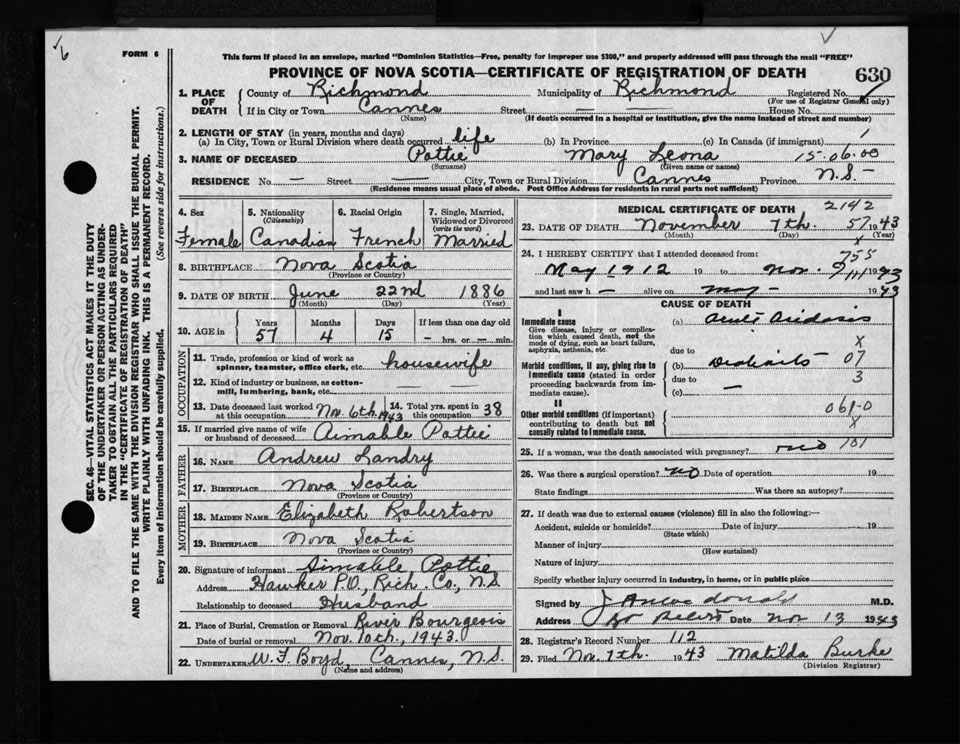 6
FORM 6
This form if placed in an envelope, marked "Dominion Statistics—Free, penalty for improper use $300," and properly addressed will pass through the mail "FREE"
PROVINCE OF NOVA SCOTIA—CERTIFICATE OF REGISTRATION OF DEATH 630
SEC. 46—VITAL STATISTICS ACT MAKES IT THE DUTY
OF THE UNDERTAKER OR PERSON ACTING AS UNDER-
TAKER TO OBTAIN ALL THE PARTICULARS REQUIRED
IN THE "CERTIFICATE OF REGISTRATION OF DEATH"
AND TO FILE THE SAME WITH THE DIVISION REGISTRAR WHO SHALL ISSUE THE BURIAL PERMIT.
WRITE PLAINLY WITH UNFADING INK. THIS IS A PERMANENT RECORD.
Every item of information should be carefully supplied. (See reverse side for instructions.)
1. PLACE OF DEATH
County of Richmond Municipality of Richmond Registered No.
(For use of Registrar General only)
If in City or Town Cannes Street — House No.
(Name) (If death occurred in a hospital or institution, give the name instead of street and number)
2. LENGTH OF STAY (in years, months and days)
(a) In City, Town or Rural Division where death occurred life (b) In Province (c) In Canada (if immigrant)
3. NAME OF DECEASED Pottie Mary Leona 15.06.00
(Surname) (Given name or names)
RESIDENCE No. — Street — City, Town or Rural Division Cannes Province N.S.
(Residence means usual place of abode. Post Office Address for residents in rural parts not sufficient)
4. Sex Female
5. Nationality (Citizenship) Canadian
6. Racial Origin French
7. Single, Married, Widowed or Divorced (write the word) Married
8. BIRTHPLACE Nova Scotia
(Province or Country)
9. DATE OF BIRTH June 22nd 1886
(Month) (Day) (Year)
10. AGE in Years 57 Months 4 Days 15 If less than one day old — hrs. or — min.
OCCUPATION
11. Trade, profession or kind of work as spinner, teamster, office clerk, etc. housewife
12. Kind of industry or business, as cotton-mill, lumbering, bank, etc. —
13. Date deceased last worked at this occupation Nov. 6th 1943
14. Total yrs. spent in this occupation 38
15. If married give name of wife or husband of deceased Aimable Pottie
FATHER
16. NAME Andrew Landry
17. BIRTHPLACE Nova Scotia
(Province or Country)
MOTHER
18. MAIDEN NAME Elizabeth Robertson
19. BIRTHPLACE Nova Scotia
(Province or Country)
20. Signature of informant Aimable Pottie
Address Hawker P.O, Rich. Co, N.S.
Relationship to deceased Husband
21. Place of Burial, Cremation or Removal River Bourgeois
Date of burial or removal Nov. 10th, 1943.
22. UNDERTAKER W. F. Boyd, Cannes, N.S.
(Name and address)
MEDICAL CERTIFICATE OF DEATH 2142
23. DATE OF DEATH November 7th. 57 1943
(Month) (Day) (Year)
X
24. I HEREBY CERTIFY that I attended deceased from: 755
May 1912 19 to Nov. 1943
and last saw h alive on May — 1943
CAUSE OF DEATH
I
Immediate cause (a)
Give disease, injury or complication which caused death, not the mode of dying, such as heart failure, asphyxia, asthenia, etc.
X
due to
Morbid conditions, if any, giving rise to immediate cause (stated in order proceeding backwards from immediate cause). (b) 07
due to — 3
(c)
II
Other morbid conditions (if important) contributing to death but not causally related to immediate cause. 061-0
X
101
25. If a woman, was the death associated with pregnancy? no
26. Was there a surgical operation? no Date of operation 19
State findings Was there an autopsy?
27. If death was due to external causes (violence) fill in also the following:—
Accident, suicide or homicide? Date of injury 19
(State which)
Manner of injury
(How sustained)
Nature of injury
Specify whether injury occurred in industry, in home, or in public place
Signed by M.D.
Address Date Nov 13 1943
28. Registrar's Record Number 112
29. Filed Nov. 7th. 1943 Matilda Burke
(Division Registrar)